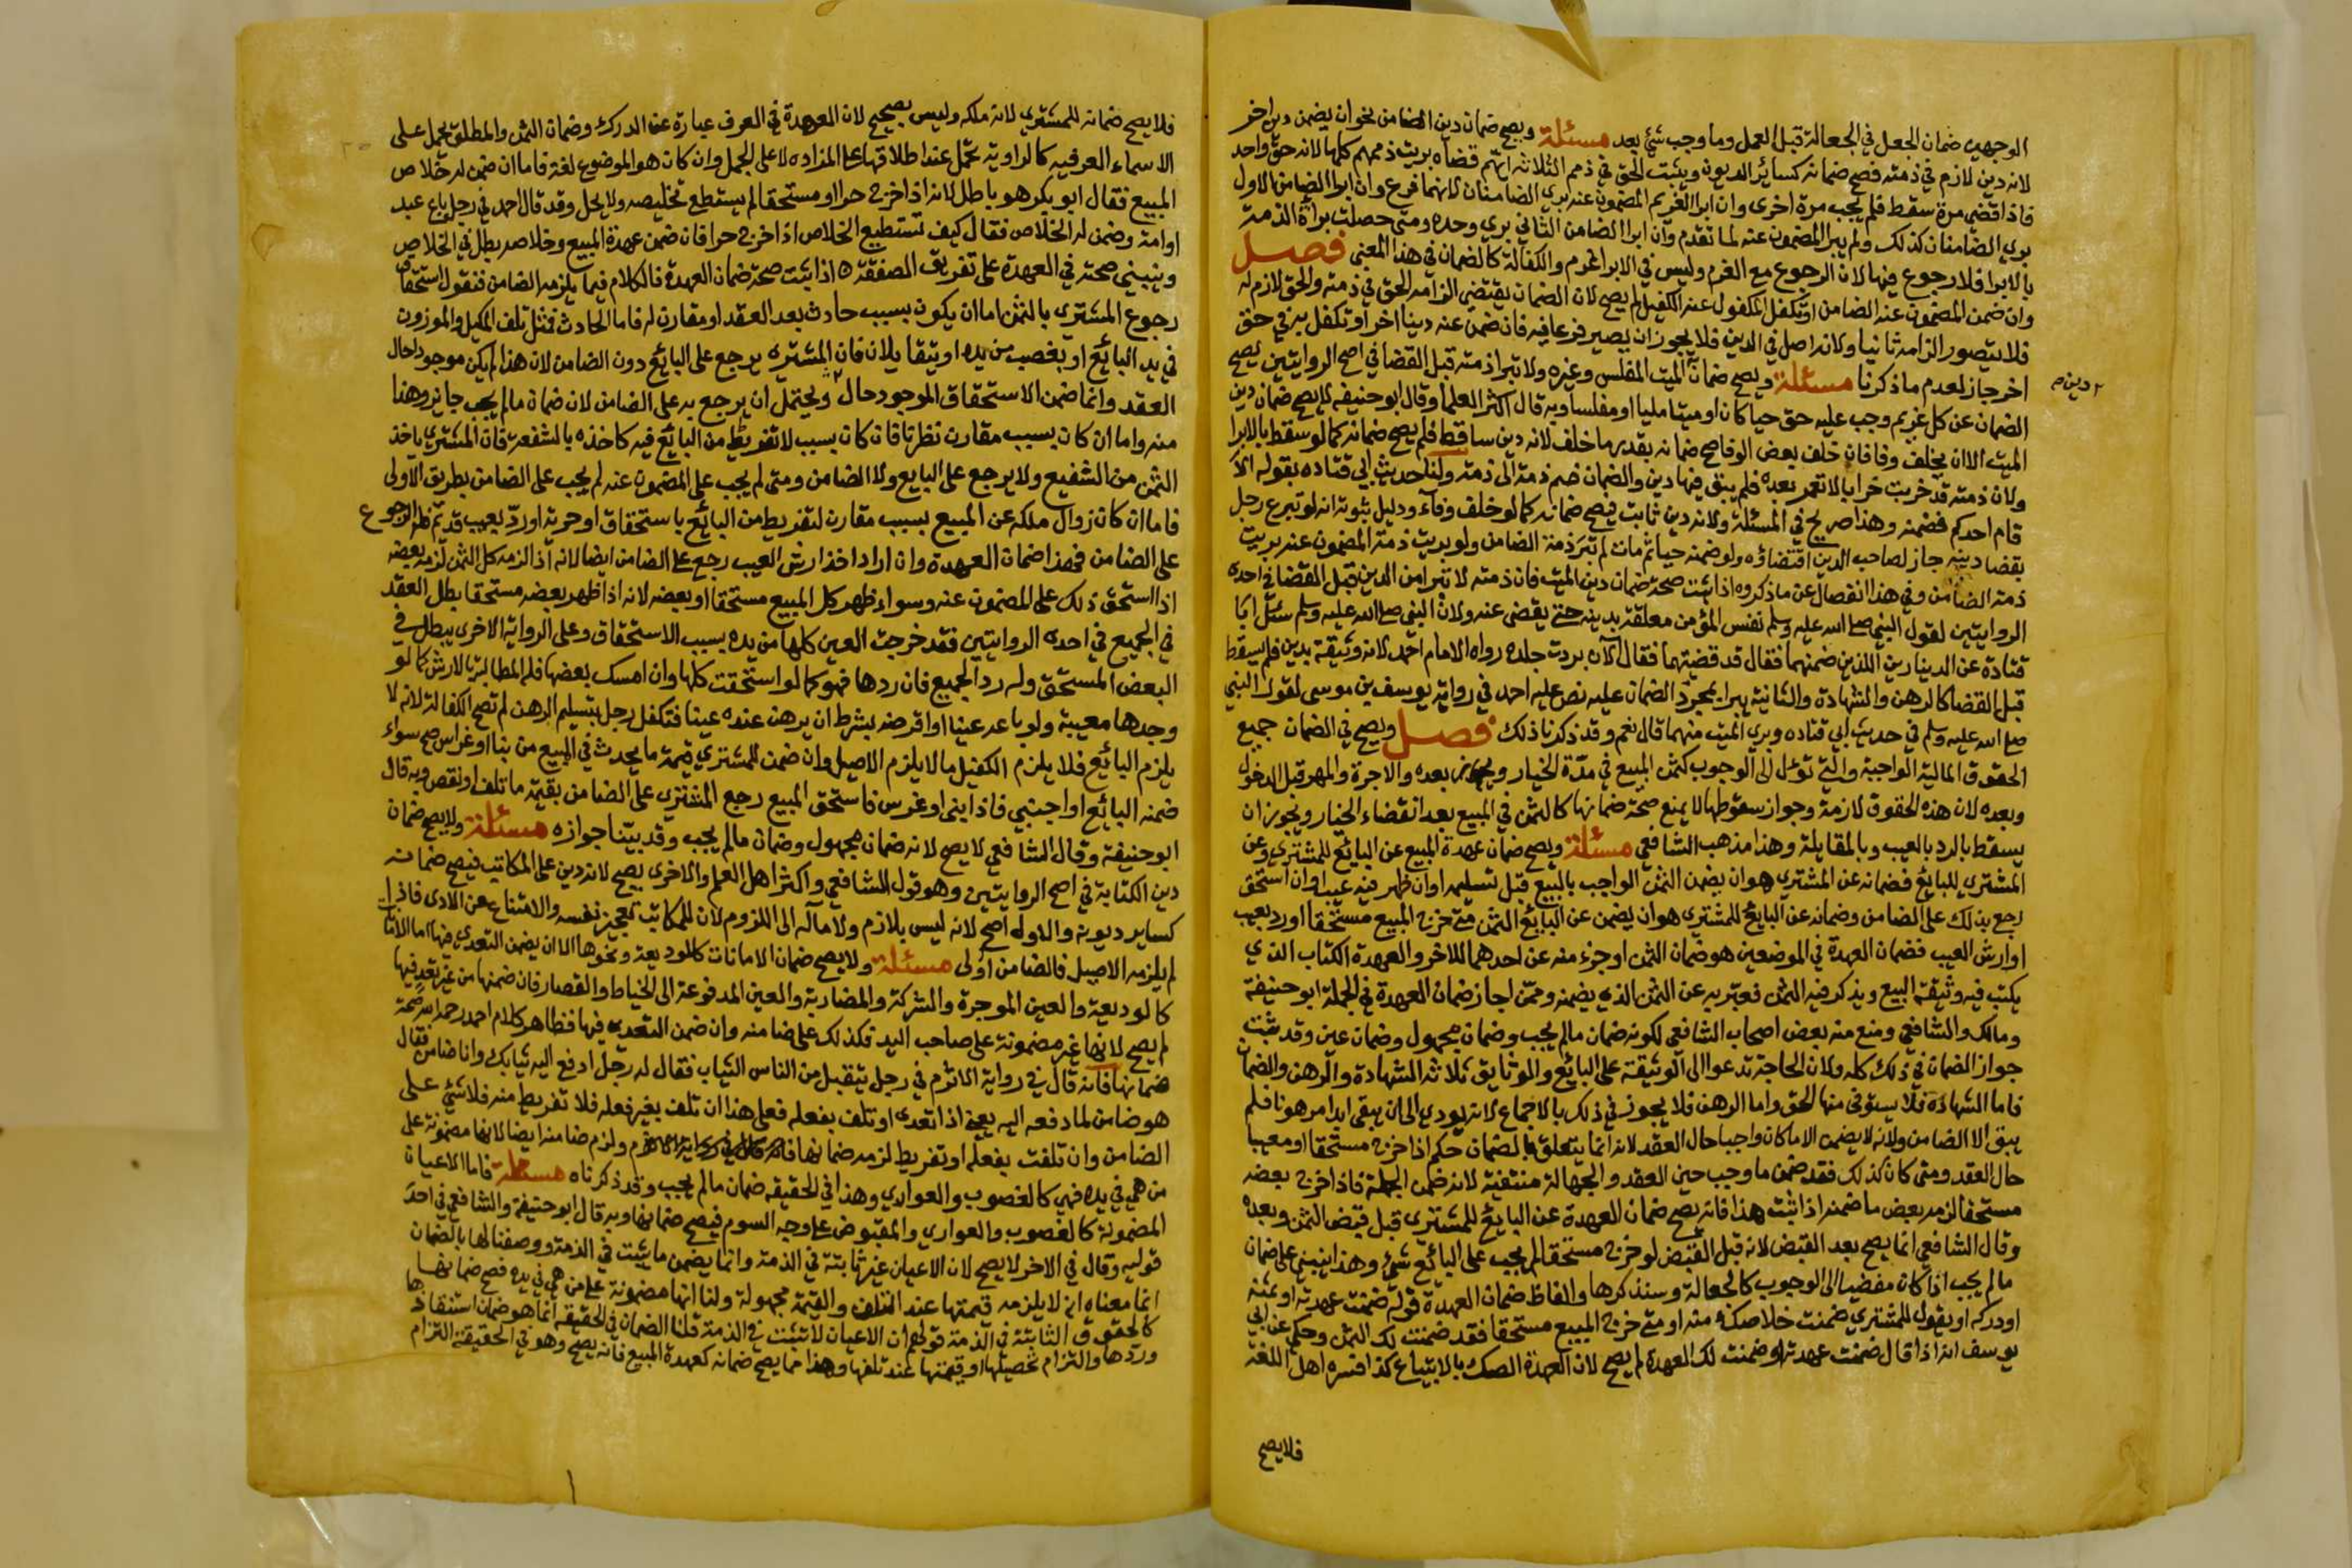 الوجهين ضمان الجعل في الجعالة قبل العمل وما وجب شئ بعد مسئلة ويصح ضمان دين الضامن نحو ان يضمن دين اخر
لانه دين لازم في ذمته فصح ضمانه كسائر الديون ويثبت الحق في ذمم الثلاثه ايهم قضاه بريت ذممهم كلها لانه حق واحد
فاذا قضي مرة سقط فلم يجب مرة اخرى وان ابرا الغريم المضمون عنه بري الضامنان لانهما فرع وان ابرا الضامن الاول
بري الضامنان كذلك ولم يبرا المضمون عنه لما تقدم وان ابرا الضامن الثاني بري وحده ومتى حصلت براة الذمة
بالابرا فلا رجوع فيها لان الرجوع مع الغرم وليس في الابرا غرم والكفالة كالضمان في هذا المعنى فصل
وان ضمن المضمون عنه الضامن او تكفل المكفول عنه الكفيل لم يصح لان الضمان يقتضي الزامه الحق في ذمته والحق لازم له
فلا يتصور الزامه ثانيا ولانه اصل في الدين فلا يجوز ان يصير فرعا فيه فان ضمن عنه دينا اخر او تكفل به في حق
اخر جاز لعدم ما ذكرنا مسئلة ويصح ضمان الميت المفلس وغيره ولا تبرا ذمته قبل القضا في اصح الروايتين يصح
دين
الضمان عن كل غريم وجب عليه حق حيا كان او ميتا مليا او مفلسا وبه قال اكثر العلما وقال ابو حنيفه لا يصح ضمان دين
الميت الا ان يخلف وفا فان خلف بعض الوفا صح ضمانه بقدر ما خلف لانه دين ساقط فلم يصح ضمانه كما لو سقط بالابرا
ولان ذمته قد خربت خرابا لا تعمر بعده فلم يبق فيها دين والضمان ضم ذمة الى ذمته ولنا حديث ابي قتاده بقوله الا
قام احدكم فضمنه وهذا صريح في المسئلة ولانه دين ثابت فيصح ضمانه كما لو خلف وفآء ودليل ثبوته انه لو تبرع رجل
بقضا دينه جاز لصاحب الدين اقتضاؤه ولو ضمنه حيا ثم مات لم تبر ذمة الضامن ولو بريت ذمة المضمون عنه بريت
ذمة الضامن وفي هذا انفصال عن ما ذكروه اذا ثبت صحة ضمان دين الميت فان ذمته لا تبرا من الدين قبل القضا في احدى
الروايتين لقول النبي صلى الله عليه وسلم نفس المؤمن معلقة بدينه حتى يقضى عنه ولان النبي صلى الله عليه وسلم سئل ابا
قتادة عن الدينارين اللذين ضمنهما فقال قد قضيتهما فقال الآن بردت جلده رواه الامام احمد لانه وثيقة بدين فلم يسقط
قبل القضا كالرهن والشهادة والثانية يبرا بمجرد الضمان عليه نص عليه احمد في رواية يوسف بن موسى لقول النبي
صلى الله عليه وسلم في حديث ابي قتاده وبري الميت منهما قال نعم وقد ذكرنا ذلك فصل ويصح في الضمان جميع
الحقوق المالية الواجبة والتي تؤل الى الوجوب كثمن المبيع في مدة الخيار وبعده والاجرة والمهر قبل الدخول
وبعده لان هذه الحقوق لازمة وجواز سقوطها لا يمنع صحة ضمانها كالثمن في المبيع بعد انقضاء الخيار ويجوز ان
يسقط بالرد بالعيب وبالمقايلة وهذا مذهب الشافعي مسئلة ويصح ضمان عهدة المبيع عن البائع للمشتري وعن
المشتري للبائع فضمانه عن المشتري هو ان يضمن الثمن الواجب بالبيع قبل تسليمه او ان ظهر فيه عيب او ان استحق
رجع بذلك على الضامن وضمانه عن البائع للمشتري هو ان يضمن عن البائع الثمن متى خرج المبيع مستحقا او رد بعيب
او ارش العيب فضمان العهدة في الموضعين هو ضمان الثمن او جزء منه عن احدهما للاخر والعهدة الكتاب الذي
يكتب فيه وثيقة البيع ويذكر فيه الثمن فعبر به عن الثمن الذي يضمنه وممن اجاز ضمان العهدة في الجملة ابو حنيفة
ومالك والشافعي ومنع منه بعض اصحاب الشافعي لكونه ضمان مالم يجب وضمان مجهول وضمان عين وقد ثبت
جواز الضمان في ذلك كله ولان الحاجة تدعوا الى الوثيقة على البائع والوثايق ثلاثه الشهادة والرهن والضمان
فاما الشهادة فلا يستوفى منها الحق واما الرهن فلا يجوز في ذلك بالاجماع لانه يودي الى ان يبقى ابدا مرهونا فلم
يبق الا الضامن ولانه لا يضمن الا ما كان واجبا حال العقد لانه انما يتعلق بالضمان حكم اذا خرج مستحقا او معيبا
حال العقد ومتى كان كذلك فقد ضمن ما وجب حين العقد والجهالة منتفية لانه ضمن الجملة فاذا خرج بعضه
مستحقا لزمه بعض ما ضمنه اذا ثبت هذا فانه يصح ضمان العهدة عن البايع للمشتري قبل قبض الثمن وبعده
وقال الشافعي انما يصح بعد القبض لانه قبل القبض لو خرج مستحقا لم يجب على البائع شئ وهذا ينبني على ضمان
مالم يجب اذا كان مفضيا الى الوجوب كالجعالة وسنذكرها والفاظ ضمان العهدة قوله ضمنت عهدته او ثمنه
او دركه او يقول للمشتري ضمنت خلاصك منه او متى خرج المبيع مستحقا فقد ضمنت لك الثمن وحكي عن ابي
يوسف انه اذا قال ضمنت عهدته او ضمنت لك العهدة لم يصح لان العهدة الصك بالابتياع كذا فسره اهل اللغة
فلا يصح
فلا يصح ضمانه للمشتري لانه ملكه وليس بصحيح لان العهدة في العرف عبارة عن الدرك وضمان الثمن والمطلق يحمل على
الاسماء العرفيه كالراوية تحمل عند اطلاقها على المزاده لا على الجمل وان كان هو الموضوع لغة فاما ان ضمن له خلاص
المبيع فقال ابو بكر هو باطل لانه اذا خرج حرا او مستحقا لم يستطع تخليصه ولا يحل وقد قال احمد في رجل باع عبد
او امة وضمن له الخلاص فقال كيف تستطيع الخلاص اذا خرج حرا فان ضمن عهدة المبيع وخلاصه بطل في الخلاص
وينبني صحته في العهدة على تفريق الصفقة اذا ثبت صحة ضمان العهدة فالكلام فيما يلزمه الضامن فنقول استحقاق
رجوع المشتري بالثمن اما ان يكون بسبب حادث بعد العقد او مقارن له فاما الحادث فمثل تلف المكيل والموزون
في يد البائع او بغصب من يده او يتقايلان فان المشتري يرجع على البائع دون الضامن لان هذا لم يكن موجودا حال
العقد وانما ضمن الاستحقاق الموجود حال ويحتمل ان يرجع به على الضامن لان ضمان مالم يجب جايز وهذا
منه واما ان كان بسبب مقارن نظرنا فان كان بسبب لا تفريط من البايع فيه كاخذه بالشفعة فان المشتري ياخذ
الثمن من الشفيع ولا يرجع على البايع ولا الضامن ومتى لم يجب على المضمون عنه لم يجب على الضامن بطريق الاولى
فاما ان كان زوال ملكه عن المبيع بسبب مقارن لتفريط من البائع باستحقاق او حرية او رد بعيب قديم فله الرجوع
على الضامن فهذا ضمان العهدة وان اراد اخذ ارش العيب رجع على الضامن ايضا لانه اذا لزمه كل الثمن لزمه بعضه
اذا استحق ذلك على المضمون عنه وسواء ظهر كل المبيع مستحقا او بعضه لانه اذا ظهر بعضه مستحقا بطل العقد
في الجميع في احدى الروايتين فقد خرجت العين كلها من يده بسبب الاستحقاق وعلى الرواية الاخرى يبطل في
البعض المستحق وله رد الجميع فان ردها فهو كما لو استحقت كلها وان امسك بعضها فله المطالبة بالارش كما لو
وجدها معيبة ولو باعه عينا او اقرضه بشرط ان يرهن عنده عينا فتكفل رجل بتسليم الرهن لم تصح الكفالة لانه لا
يلزم البائع فلا يلزم الكفيل ما لا يلزم الاصيل وان ضمن للمشتري قيمة ما يحدث في المبيع من بنا او غراس صح سواء
ضمنه البائع او اجنبي فاذا بنى او غرس فاستحق المبيع رجع المشتري على الضامن بقيمة ما تلف او نقص وبه قال
ابو حنيفة وقال الشافعي لا يصح لانه ضمان مجهول وضمان مالم يجب وقد بينا جوازه مسئلة ولا يصح ضمان
دين الكتابة في اصح الروايتين وهو قول الشافعي واكثر اهل العلم والاخرى يصح لانه دين على المكاتب فيصح ضمانه
كساير ديونه والاوله اصح لانه ليس بلازم ولا مآله الى اللزوم لان للمكاتب تعجيز نفسه والامتناع عن الادى فاذا
لم يلزمه الاصيل فالضامن اولى مسئلة ولا يصح ضمان الامانات كالوديعة ونحوها الا ان يضمن التعدي فيها اما الامانات
كالوديعة والعين الموجرة والشركة والمضاربة والعين المدفوعة الى الخياط والقصار فان ضمنها من غير تعد فيها
لم يصح لانها غير مضمونة على صاحب اليد فكذلك على ضامنه وان ضمن التعدي فيها فظاهر كلام احمد رحمه الله صحة
ضمانها فانه قال في رواية الاثرم في رجل يتقبل من الناس الثياب فقال له رجل ادفع اليه ثيابك وانا ضامن فقال
هو ضامن لما دفعه اليه يعني اذا تعدى او تلف بفعله فعلى هذا ان تلف بغير فعله فلا تفريط منه فلا شئ على
الضامن وان تلفت بفعله او تفريط لزمه ضمانها ولزم ضامنه ايضا لانها مضمونة على
من هي في يده فهي كالغصوب والعواري وهذا في الحقيقه ضمان مالم يجب وقد ذكرناه مسئلة فاما الاعيان
المضمونة كالغصوب والعواري والمقبوض على وجه السوم فيصح ضمانها وبه قال ابو حنيفة والشافعي في احد
قوليه وقال في الاخر لا يصح لان الاعيان غير ثابتة في الذمة وانما يضمن ما يثبت في الذمة ووصفنا لها بالضمان
انما معناه انه لا يلزمه قيمتها عند التلف والقيمة مجهولة ولنا انها مضمونة على من هي في يده فصح ضمانها
كالحقوق الثابتة في الذمة قولهم ان الاعيان لا تثبت في الذمة قلنا الضمان في الحقيقه انما هو ضمان استنقاذها
وردها والتزام تحصيلها او قيمتها عند تلفها وهذا مما يصح ضمانه كعهدة المبيع فانه يصح وهو في الحقيقة التزام